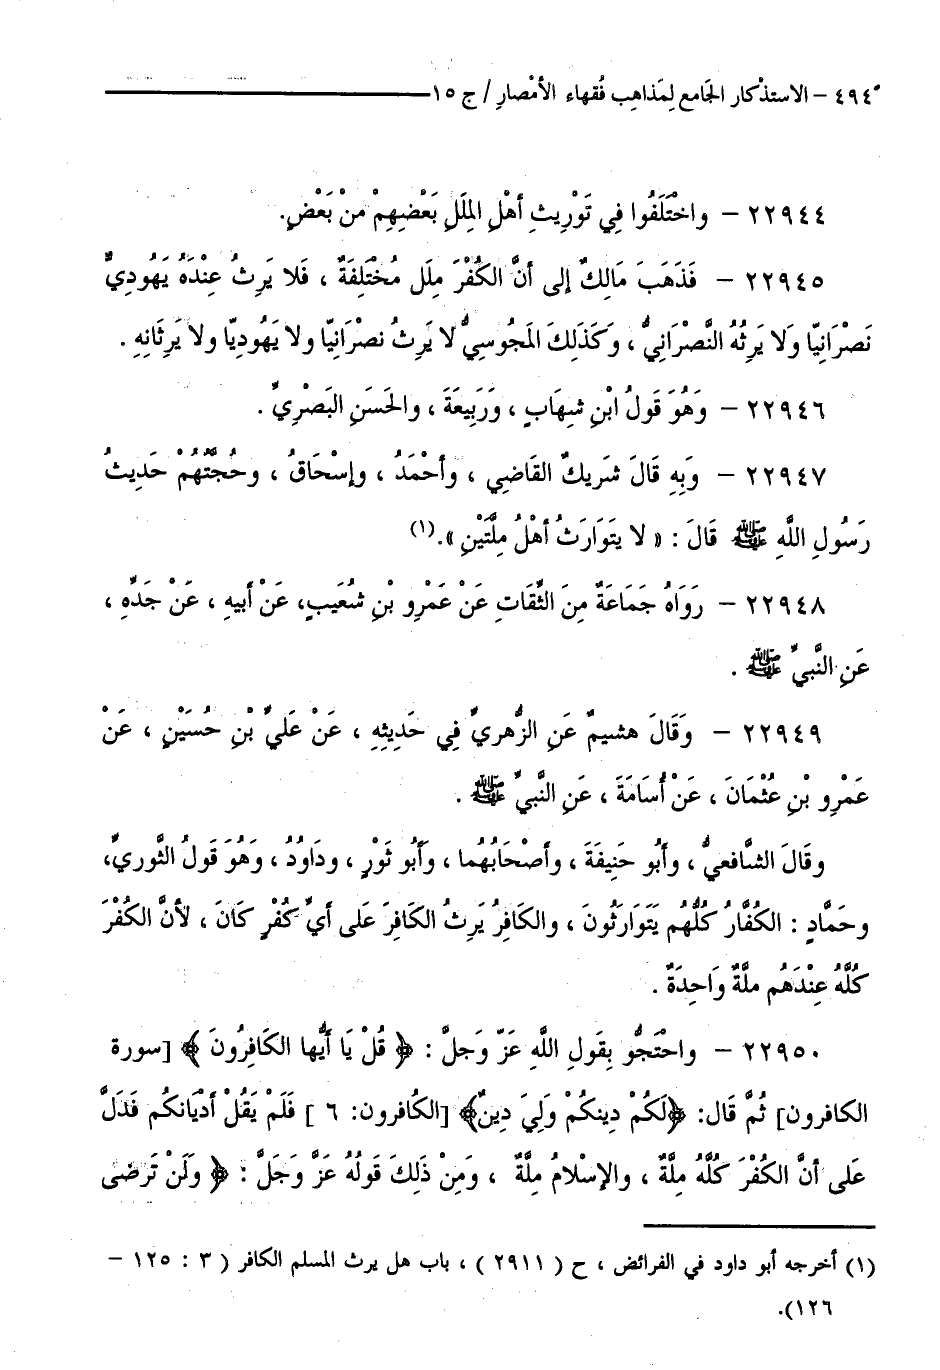 ٤٩٤ - الاستذْكار الجَامع لِمَذاهِب فُقهاء الأمْصارِ / ج ١٥
٢٢٩٤٤ - واخْتَلَفُوا فِي تَوْرِيثِ أهْلِ المِلَلِ بَعْضِهِمْ مِنْ بَعْضٍ.
٢٢٩٤٥ - فَذَهَبَ مَالِكٌ إلى أنَّ الكُفْرَ مِلَل مُخْتَلِفَةٌ ، فَلا يَرِثُ عِنْدَهُ يَهُودِيٌّ
نَصْرَانِيّا وَلا يَرِثُهُ النَّصْرَانِيُّ ، وَكَذَلِكَ المَجُوسيُّ لا يَرِثُ نصْرَانِيّا ولا يَهُودِيّا ولا يَرِثَانِهِ .
٢٢٩٤٦ - وَهُوَ قَولُ ابْنِ شِهَابٍ ، وَرَبِيعَةَ ، والحَسَنِ البَصْرِيِّ .
٢٢٩٤٧ - وَبِهِ قَالَ شَرِيكٌ القَاضِي ، وأحْمَدُ ، وإسْحَاقُ ، وحُجَّتُهُمْ حَدِيثُ
رَسُولِ اللَّهِ ﷺ قَالَ : « لا يَتَوَارَثُ أهْلُ مِلَّتَيْنِ ».(١)
٢٢٩٤٨ - رَوَاهُ جَمَاعَةٌ مِنَ الثِّقَاتِ عَنْ عَمْرِو بْنِ شُعَيبٍ، عَنْ أبيهِ ، عَنْ جَدِّهِ ،
عَنِ النَّبيِّ ﷺ .
٢٢٩٤٩ - وَقَالَ هشيمٌ عَنِ الزُّهريِّ فِي حَدِيثِهِ ، عَنْ عَليِّ بْنِ حُسَيْنٍ ، عَنْ
عَمْرِو بْنِ عُثْمَانَ ، عَنْ أُسَامَةَ ، عَنِ النَّبيِّ ﷺ .
وقَالَ الشَّافعيُّ ، وأبُو حَنِيفَةَ ، وأصْحَابُهُما ، وأبُو ثَوْرٍ ، ودَاوُدُ ، وَهُوَ قَولُ الثَّوريِّ،
وحَمَّادٍ : الكُفَّارُ كُلُّهُم يَتَوَارَثُونَ ، والكَافِرُ يَرِثُ الكَافِرَ عَلى أيِّ كُفْرٍ كَانَ ، لأنَّ الكُفْرَ
كُلَّهُ عِنْدَهُم مِلَّةٌ وَاحِدَةٌ .
٢٢٩٥٠ - واحْتَجُّو بِقَولِ اللَّهِ عَزّ وَجلَّ : ﴿ قُلْ يَا أيُّها الكَافِرُونَ ﴾ [سورة
الكافرون] ثُمَّ قَال: ﴿لَكُمْ دِينكُمْ وَلِيَ دِينٌ﴾ [الكافرون: ٦ ] فَلَمْ يَقُلْ أدْيَانكُم فَدَلَّ
عَلى أنَّ الكُفْرَ كُلَّهُ مِلَّةٌ ، والإسْلامُ مِلَّةٌ ، وَمِنْ ذَلِكَ قَولُهُ عَزَّ وَجَلَّ : ﴿ ولَنْ تَرضَى
(١) أخرجه أبو داود في الفرائض ، ح ( ٢٩١١ ) ، باب هل يرث المسلم الكافر ( ٣ : ١٢٥ -
١٢٦).